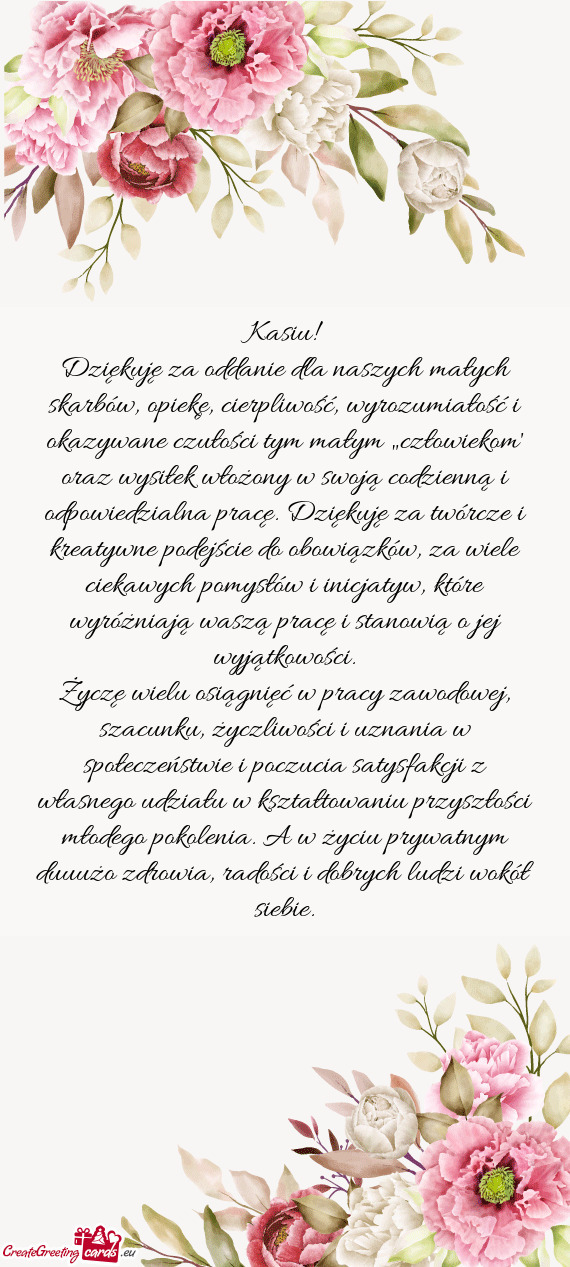 Kasiu!
Dziękuję za oddanie dla naszych małych
skarbów, opiekę, cierpliwość, wyrozumiałość i
okazywane czułości tym małym „człowiekom'
oraz wysiłek włożony w swoją codzienną i
odpowiedzialna pracę. Dziękuję za twórcze i
kreatywne podejście do obowiązków, za wiele
ciekawych pomysłów i inicjatyw, które
wyróżniają waszą pracę i stanowią o jej
wyjątkowości.
Życzę wielu osiągnięć w pracy zawodowej,
szacunku, życzliwości i uznania w
społeczeństwie i poczucia satysfakcji z
własnego udziału w kształtowaniu przyszłości
młodego pokolenia. A w życiu prywatnym
duuużo zdrowia, radości i dobrych ludzi wokół
siebie.
CreateGreeting cards .eu